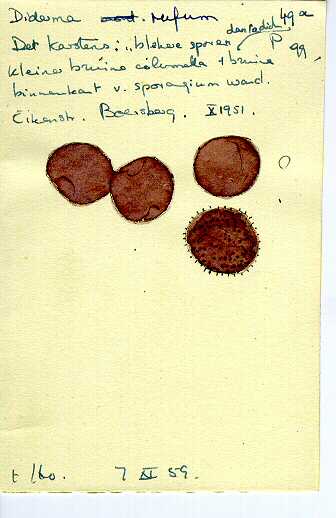 Diderma rufum 49a
Det Karstens: blekere sporen dan radiata P 99
kleinere bruine columella + bruine
binnenkant v. sporangium wand.
Eikenstr. Boersberg. X 1951.
t/60. 7 XI 59.